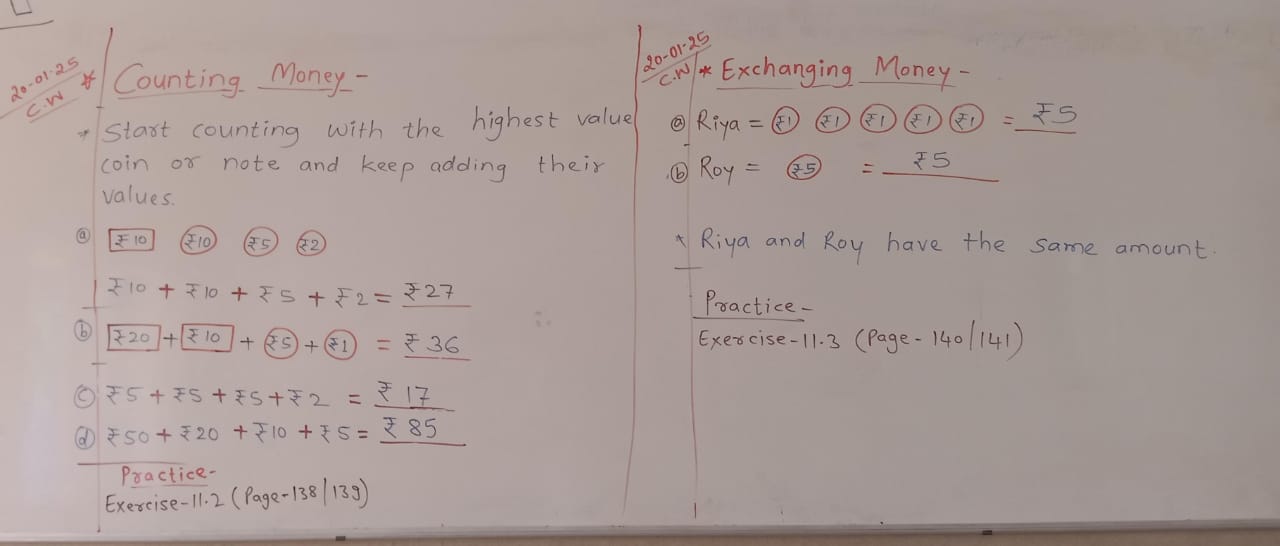 20-01-25
C.W
* Counting Money -
* Start counting with the highest value
coin or note and keep adding their
values.
ⓐ ₹10 ₹10 ₹5 ₹2
₹10 + ₹10 + ₹5 + ₹2 = ₹27
ⓑ ₹20 + ₹10 + ₹5 + ₹1 = ₹36
ⓒ ₹5 + ₹5 + ₹5 + ₹2 = ₹17
ⓓ ₹50 + ₹20 + ₹10 + ₹5 = ₹85
Practice-
Exercise-11.2 (Page-138/139)
20-01-25
C.W
* Exchanging Money -
ⓐ Riya = ₹1 ₹1 ₹1 ₹1 ₹1 = ₹5
ⓑ Roy = ₹5 = ₹5
* Riya and Roy have the same amount.
Practice -
Exercise-11.3 (Page-140/141)